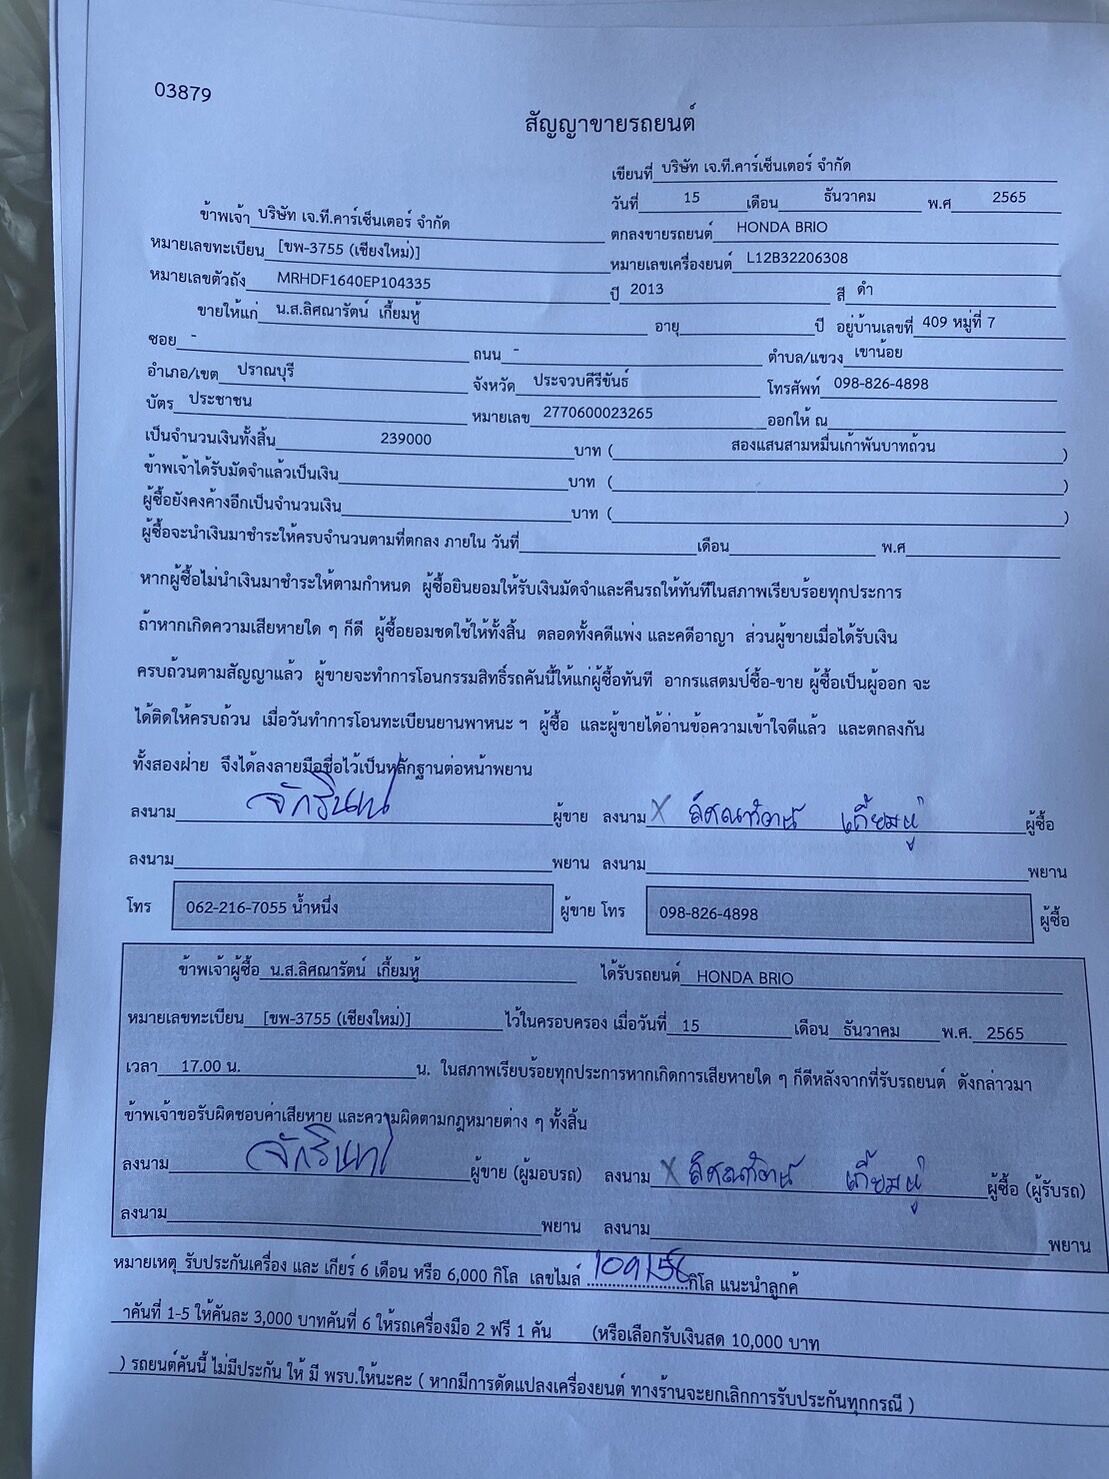 03879
สัญญาขายรถยนต์
เขียนที่ บริษัท เจ.ที.คาร์เซ็นเตอร์ จำกัด
วันที่ 15 เดือน ธันวาคม พ.ศ 2565
ข้าพเจ้า บริษัท เจ.ที.คาร์เซ็นเตอร์ จำกัด ตกลงขายรถยนต์ HONDA BRIO
หมายเลขทะเบียน [ขพ-3755 (เชียงใหม่)] หมายเลขเครื่องยนต์ L12B32206308
หมายเลขตัวถัง MRHDF1640EP104335 ปี 2013 สี ดำ
ขายให้แก่ น.ส.ลิศณารัตน์ เกี้ยมหู้ อายุ ปี อยู่บ้านเลขที่ 409 หมู่ที่ 7
ซอย - ถนน - ตำบล/แขวง เขาน้อย
อำเภอ/เขต ปราณบุรี จังหวัด ประจวบคีรีขันธ์ โทรศัพท์ 098-826-4898
บัตร ประชาชน หมายเลข 2770600023265 ออกให้ ณ
เป็นจำนวนเงินทั้งสิ้น 239000 บาท ( สองแสนสามหมื่นเก้าพันบาทถ้วน )
ข้าพเจ้าได้รับมัดจำแล้วเป็นเงิน บาท ( )
ผู้ซื้อยังคงค้างอีกเป็นจำนวนเงิน บาท ( )
ผู้ซื้อจะนำเงินมาชำระให้ครบจำนวนตามที่ตกลง ภายใน วันที่ เดือน พ.ศ
หากผู้ซื้อไม่นำเงินมาชำระให้ตามกำหนด ผู้ซื้อยินยอมให้รับเงินมัดจำและคืนรถให้ทันทีในสภาพเรียบร้อยทุกประการ
ถ้าหากเกิดความเสียหายใด ๆ ก็ดี ผู้ซื้อยอมชดใช้ให้ทั้งสิ้น ตลอดทั้งคดีแพ่ง และคดีอาญา ส่วนผู้ขายเมื่อได้รับเงิน
ครบถ้วนตามสัญญาแล้ว ผู้ขายจะทำการโอนกรรมสิทธิ์รถคันนี้ให้แก่ผู้ซื้อทันที อากรแสตมป์ซื้อ-ขาย ผู้ซื้อเป็นผู้ออก จะ
ได้ติดให้ครบถ้วน เมื่อวันทำการโอนทะเบียนยานพาหนะ ฯ ผู้ซื้อ และผู้ขายได้อ่านข้อความเข้าใจดีแล้ว และตกลงกัน
ทั้งสองฝ่าย จึงได้ลงลายมือชื่อไว้เป็นหลักฐานต่อหน้าพยาน
ลงนาม ผู้ขาย ลงนาม X ลิศณารัตน์ เกี้ยมหู้ ผู้ซื้อ
ลงนาม พยาน ลงนาม พยาน
โทร 062-216-7055 น้ำหนึ่ง ผู้ขาย โทร 098-826-4898 ผู้ซื้อ
ข้าพเจ้าผู้ซื้อ น.ส.ลิศณารัตน์ เกี้ยมหู้ ได้รับรถยนต์ HONDA BRIO
หมายเลขทะเบียน [ขพ-3755 (เชียงใหม่)] ไว้ในครอบครอง เมื่อวันที่ 15 เดือน ธันวาคม พ.ศ. 2565
เวลา 17.00 น. น. ในสภาพเรียบร้อยทุกประการหากเกิดการเสียหายใด ๆ ก็ดีหลังจากที่รับรถยนต์ ดังกล่าวมา
ข้าพเจ้าขอรับผิดชอบค่าเสียหาย และความผิดตามกฎหมายต่าง ๆ ทั้งสิ้น
ลงนาม ผู้ขาย (ผู้มอบรถ) ลงนาม X ลิศณารัตน์ เกี้ยมหู้ ผู้ซื้อ (ผู้รับรถ)
ลงนาม พยาน ลงนาม พยาน
หมายเหตุ รับประกันเครื่อง และ เกียร์ 6 เดือน หรือ 6,000 กิโล เลขไมล์ 109156 กิโล แนะนำลูกค้
าคันที่ 1-5 ให้คันละ 3,000 บาทคันที่ 6 ให้รถเครื่องมือ 2 ฟรี 1 คัน (หรือเลือกรับเงินสด 10,000 บาท
) รถยนต์คันนี้ ไม่มีประกัน ให้ มี พรบ.ให้นะคะ ( หากมีการดัดแปลงเครื่องยนต์ ทางร้านจะยกเลิกการรับประกันทุกกรณี )